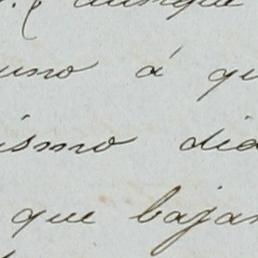 aunque
uno á qu
ismo dia
que bajar